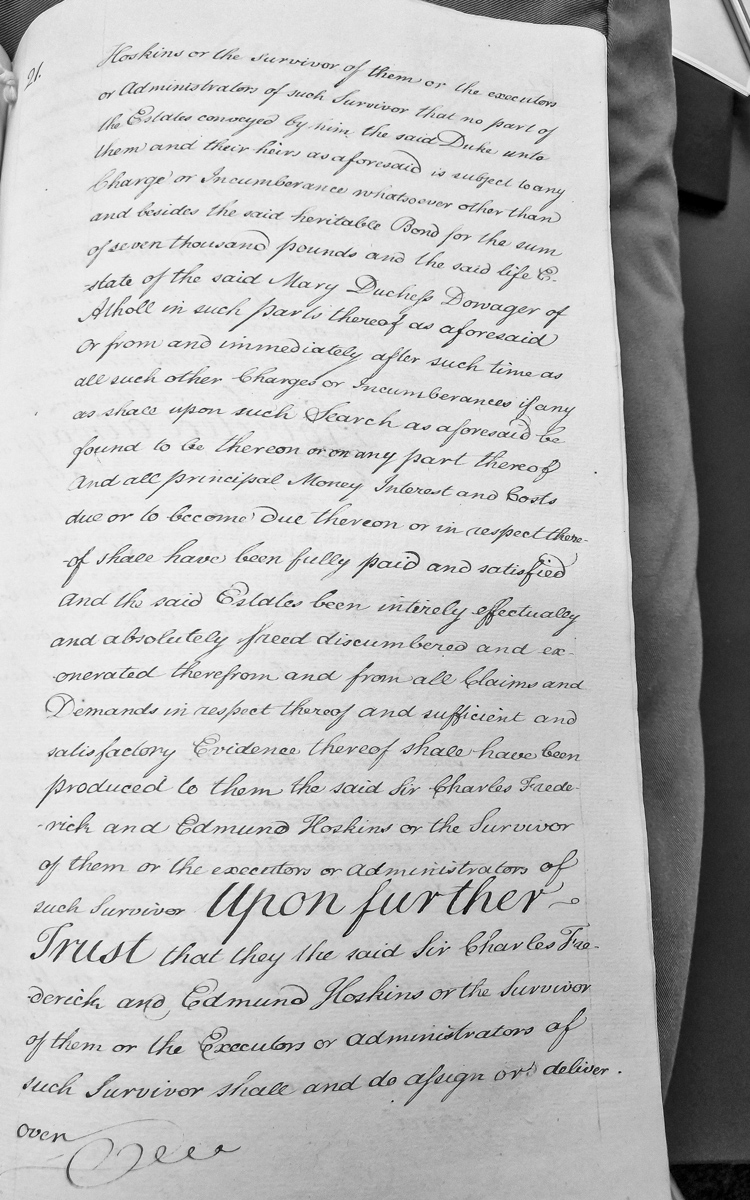 21.
Hoskins or the survivor of them or the executors
or Administrators of such Survivor that no part of
the Estates conveyed by him the said Duke unto
them and their heirs as aforesaid is subject to any
Charge or Incumberance whatsoever other than
and besides the said heritable Bond for the sum
of seven thousand pounds and the said life E-
state of the said Mary Duchess Dowager of
Atholl in such parts thereof as aforesaid
Or from and immediately after such time as
all such other Charges or Incumberances if any
as shall upon such Search as aforesaid be
found to be thereon or on any part thereof
And all principal Money Interest and Costs
due or to become due thereon or in respect there-
-of shall have been fully paid and satisfied
And the said Estates been intirely effectually
and absolutely freed discumbered and ex-
onerated therefrom and from all Claims and
Demands in respect thereof and sufficient and
satisfactory Evidence thereof shall have been
produced to them the said Sir Charles Frede-
-rick and Edmund Hoskins or the Survivor
of them or the executors or administrators of
such Survivor Upon further
Trust that they the said Sir Charles Fre-
derick and Edmund Hoskins or the Survivor
of them or the Executors or administrators of
such Survivor shall and do assign or deliver
over